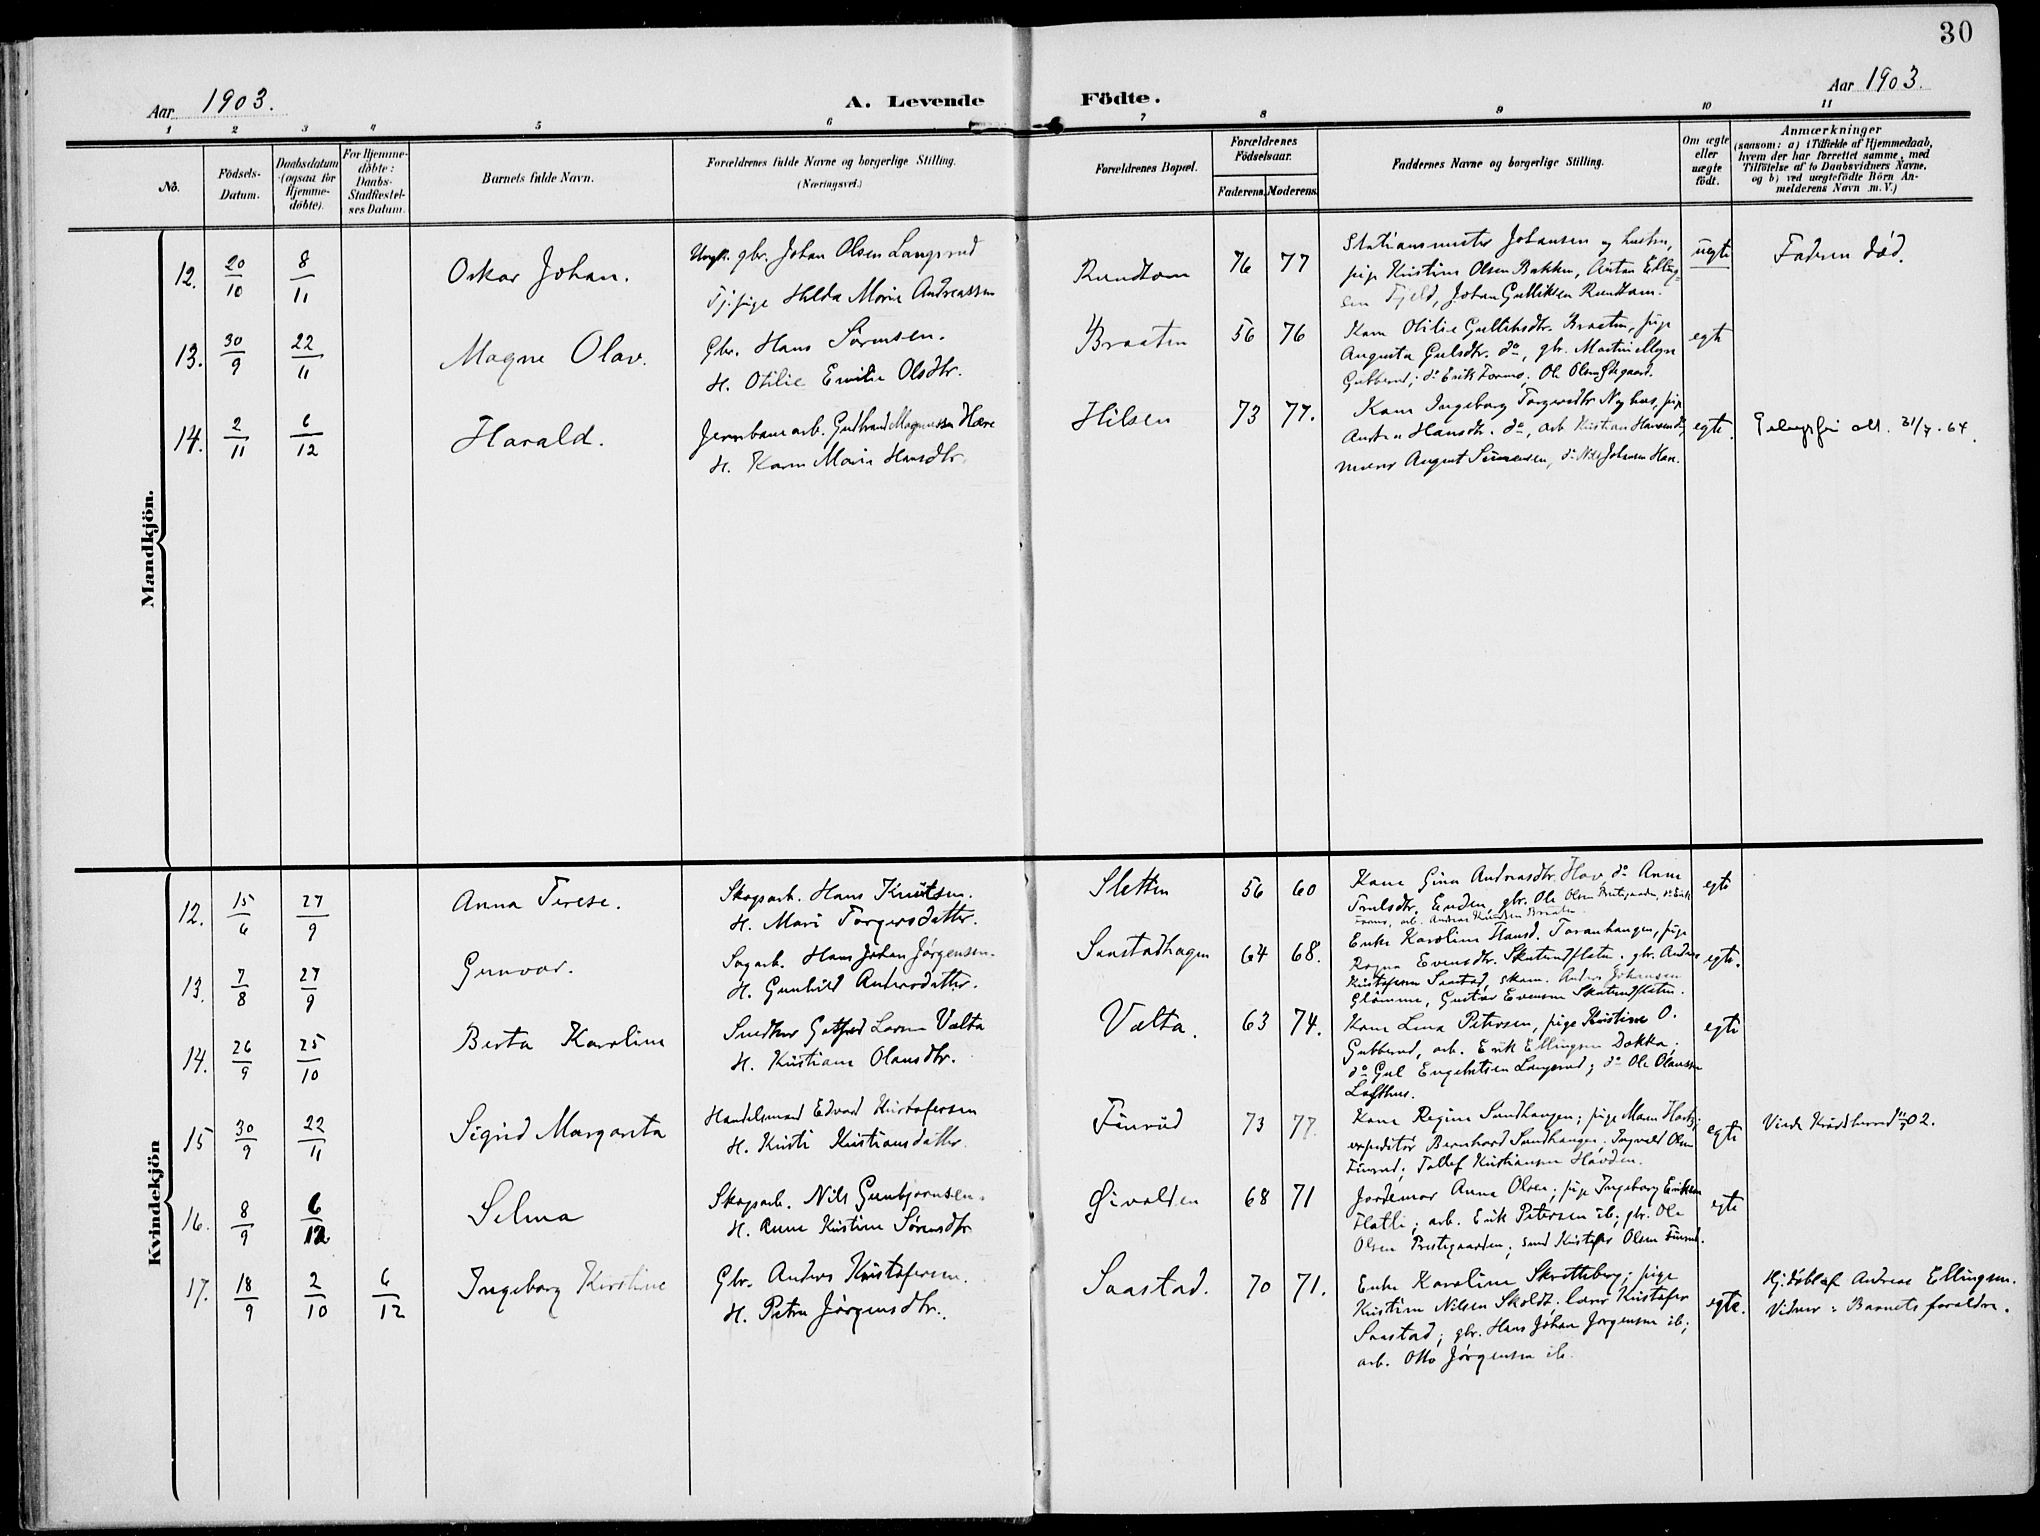 30
Aar 1903.
A. Levende Födte.
Aar 1903.
1 2 3 4 5 6 7 8 9 10 11
No.
Födsels-Datum.
Daabsdatum (ogsaa for Hjemme-döbte).
For Hjemme-döbte: Daabs-Stadfæstel-ses Datum.
Barnets fulde Navn.
Forældrenes fulde Navne og borgerlige Stilling.
(Næringsvei.)
Forældrenes Bopæl.
Forældrenes Födselsaar.
Faderens. Moderens.
Faddernes Navne og borgerlige Stilling.
Om ægte eller uægte födt.
Anmærkninger
(saasom: a) i Tilfælde af Hjemmedaab,
hvem der har forrettet samme, med
Tilföielse af to Daabsvidners Navne,
og b) ved uægtefödte Börn An-
melderens Navn m. V.)
Mandkjön.
12. 20/10 8/11 Oskar Johan.
Ungk. gbr. Johan Olsen Langerud
Tj. pige Hilda Marie Andreassen
Rundtom 76 77
Stationsmester Johansen og hustru,
pige Kristine Olsen Bakken, Anton Elling-
sen Fjeld, Johan Gulliksen Rundtom.
uegte
Faderen död.
13. 30/9 22/11 Magne Olav.
Gbr. Hans Sørensen.
H. Otilie Emilie Olsdtr.
Braaten 56 76
Kone Otilie Gulliksdtr. Braaten, pige
Augusta Gulsdtr. do, gbr. Martin
Gubberud; do Erik Formo, Ole Olsen
egte
14. 2/11 6/12 Harald.
Jernbanearb. Gudbrand Magnussen Hære
H. Karen Marie Hansdtr.
Hilsen 73 77.
Kone Ingeborg Torgersdtr Nyhus, pige
Hansdtr. do, arb Kristian Hansen do,
August Simensen, do Nils Johansen
egte.
31/7. 64.
Kvindekjön
12. 15/6 27/9 Anna Terese.
Skogsarb. Hans Knutsen.
H. Mari Torgersdatter.
Sletten 56 60
Kone Gina Andreasdtr. Hov, do Anne
Trulsdtr. Enden, gbr. Ole Olsen Prestgaarden, do Erik
Formo, arb. Andreas Knudsen Braaten.
egte
13. 7/8 27/9 Gunvor.
Sagarb. Hans Johan Jørgensen.
H. Gunhild Andersdatter.
Saastadhagen 64 68.
Enke Karoline Hansd. Toranhaugen, pige
Ragna Evensdtr. Skatrudflaten. gbr. Anders
Kristofersen Saastad, skom. Anders Johansen
Glomme, Gustav Evensen Skatrudflaten.
egte.
14. 26/9 25/10 Berta Karoline
Snedker Gotfred Larsen Vælta
H. Kristiane Olausdtr.
Vælta. 63 74.
Kone Lina Petersen, pige Kristine O.
Gubberud, arb. Erik Ellingsen Dokka,
do Gul Engebretsen Langerud; do Ole Olaussen
Lofthus.
egte
15 30/9 22/11 Sigrid Margarita
Handelsmand Edvard Kristofersen
H. Kirsti Kristiansdatter.
Finrud 73 77.
Kone Regine Sundhaugen; pige Maren
expeditör Bernhard Sundhaugen; Ingvald Olsen
Finrud; Tollef Kristiansen Havden.
egte
Viede Krödsherred 02.
16. 8/9 6/12 Selma
Skogsarb. Nils Gunbjørnsen.
H. Anne Kristine Sørensdtr
Øivolden 68 71
Jordemor Anna Olsen; pige Ingeborg Eriksen
Hatli; arb. Erik Petersen ib; gbr. Ole
Olsen Prestegaarden; smed Kristofer Olsen Finrud.
egte
17. 18/9 2/10 6/12 Ingeborg Kirstine
Gbr. Anders Kristofersen.
H. Petra Jörgensdtr.
Saastad. 70 71.
Enke Karoline Skretteberg; pige
Kristine Nilsen Skoldt; lærer Kristofer
Saastad; gbr. Hans Johan Jørgensen ib;
arb. Otto Jørgensen ib.
egte.
Hj.döbt af Andreas Ellingsen.
Vidner: Barnets forældre.